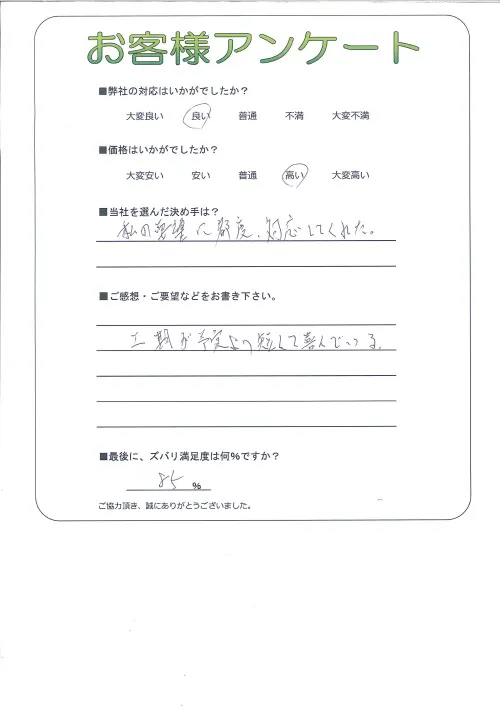 お客様アンケート
■弊社の対応はいかがでしたか？
大変良い 良い 普通 不満 大変不満
■価格はいかがでしたか？
大変安い 安い 普通 高い 大変高い
■当社を選んだ決め手は？
私の要望に都度、対応してくれた。
■ご感想・ご要望などをお書き下さい。
工期が予定より短くて喜んでいる。
■最後に、ズバリ満足度は何%ですか？
85 %
ご協力頂き、誠にありがとうございました。